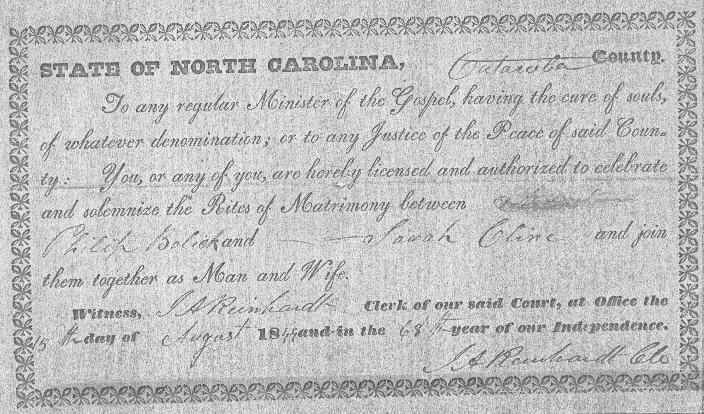 STATE OF NORTH CAROLINA, Catawba County.
To any regular Minister of the Gospel, having the cure of souls,
of whatever denomination; or to any Justice of the Peace of said Coun-
ty: You, or any of you, are hereby licensed and authorized to celebrate
and solemnize the Rites of Matrimony between
Philip Bolick and Sarah Cline and join
them together as Man and Wife.
Witness, J A Reinhardt Clerk of our said Court, at Office the
15th day of August 1844 and in the 68th year of our Independence.
J A Reinhardt Clk